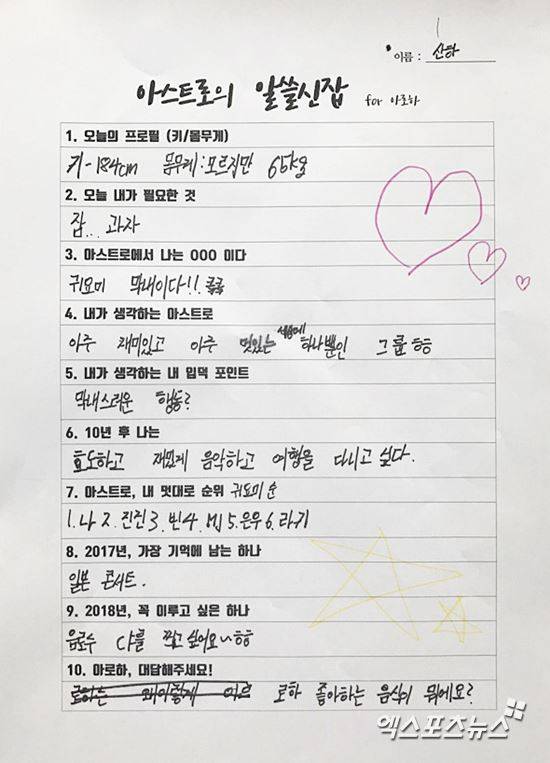 이름 : 산하
아스트로의 알쓸신잡 for 아로하
1. 오늘의 프로필 (키/몸무게)
키-184cm 몸무게:모르지만 65kg요
2. 오늘 내가 필요한 것
잠... 과자
3. 아스트로에서 나는 OOO 이다
귀요미 막내이다!! ㅋㅋ
4. 내가 생각하는 아스트로
아주 재미있고 아주 멋있는 세상에 하나뿐인 그룹ㅎㅎ
5. 내가 생각하는 내 입덕 포인트
막내스러운 행동?
6. 10년 후 나는
효도하고 재밌게 음악하고 여행을 다니고 싶다.
7. 아스트로, 내 멋대로 순위 귀요미 순
1.나 2.진진 3.빈 4.MJ 5.은우 6.라키
8. 2017년, 가장 기억에 남는 하나
일본 콘서트.
9. 2018년, 꼭 이루고 싶은 하나
음료수 CF를 찍고 싶어요~ㅎㅎ
10. 아로하, 대답해주세요!
로하 좋아하는 음식이 뭐에요?
엑스포츠뉴스